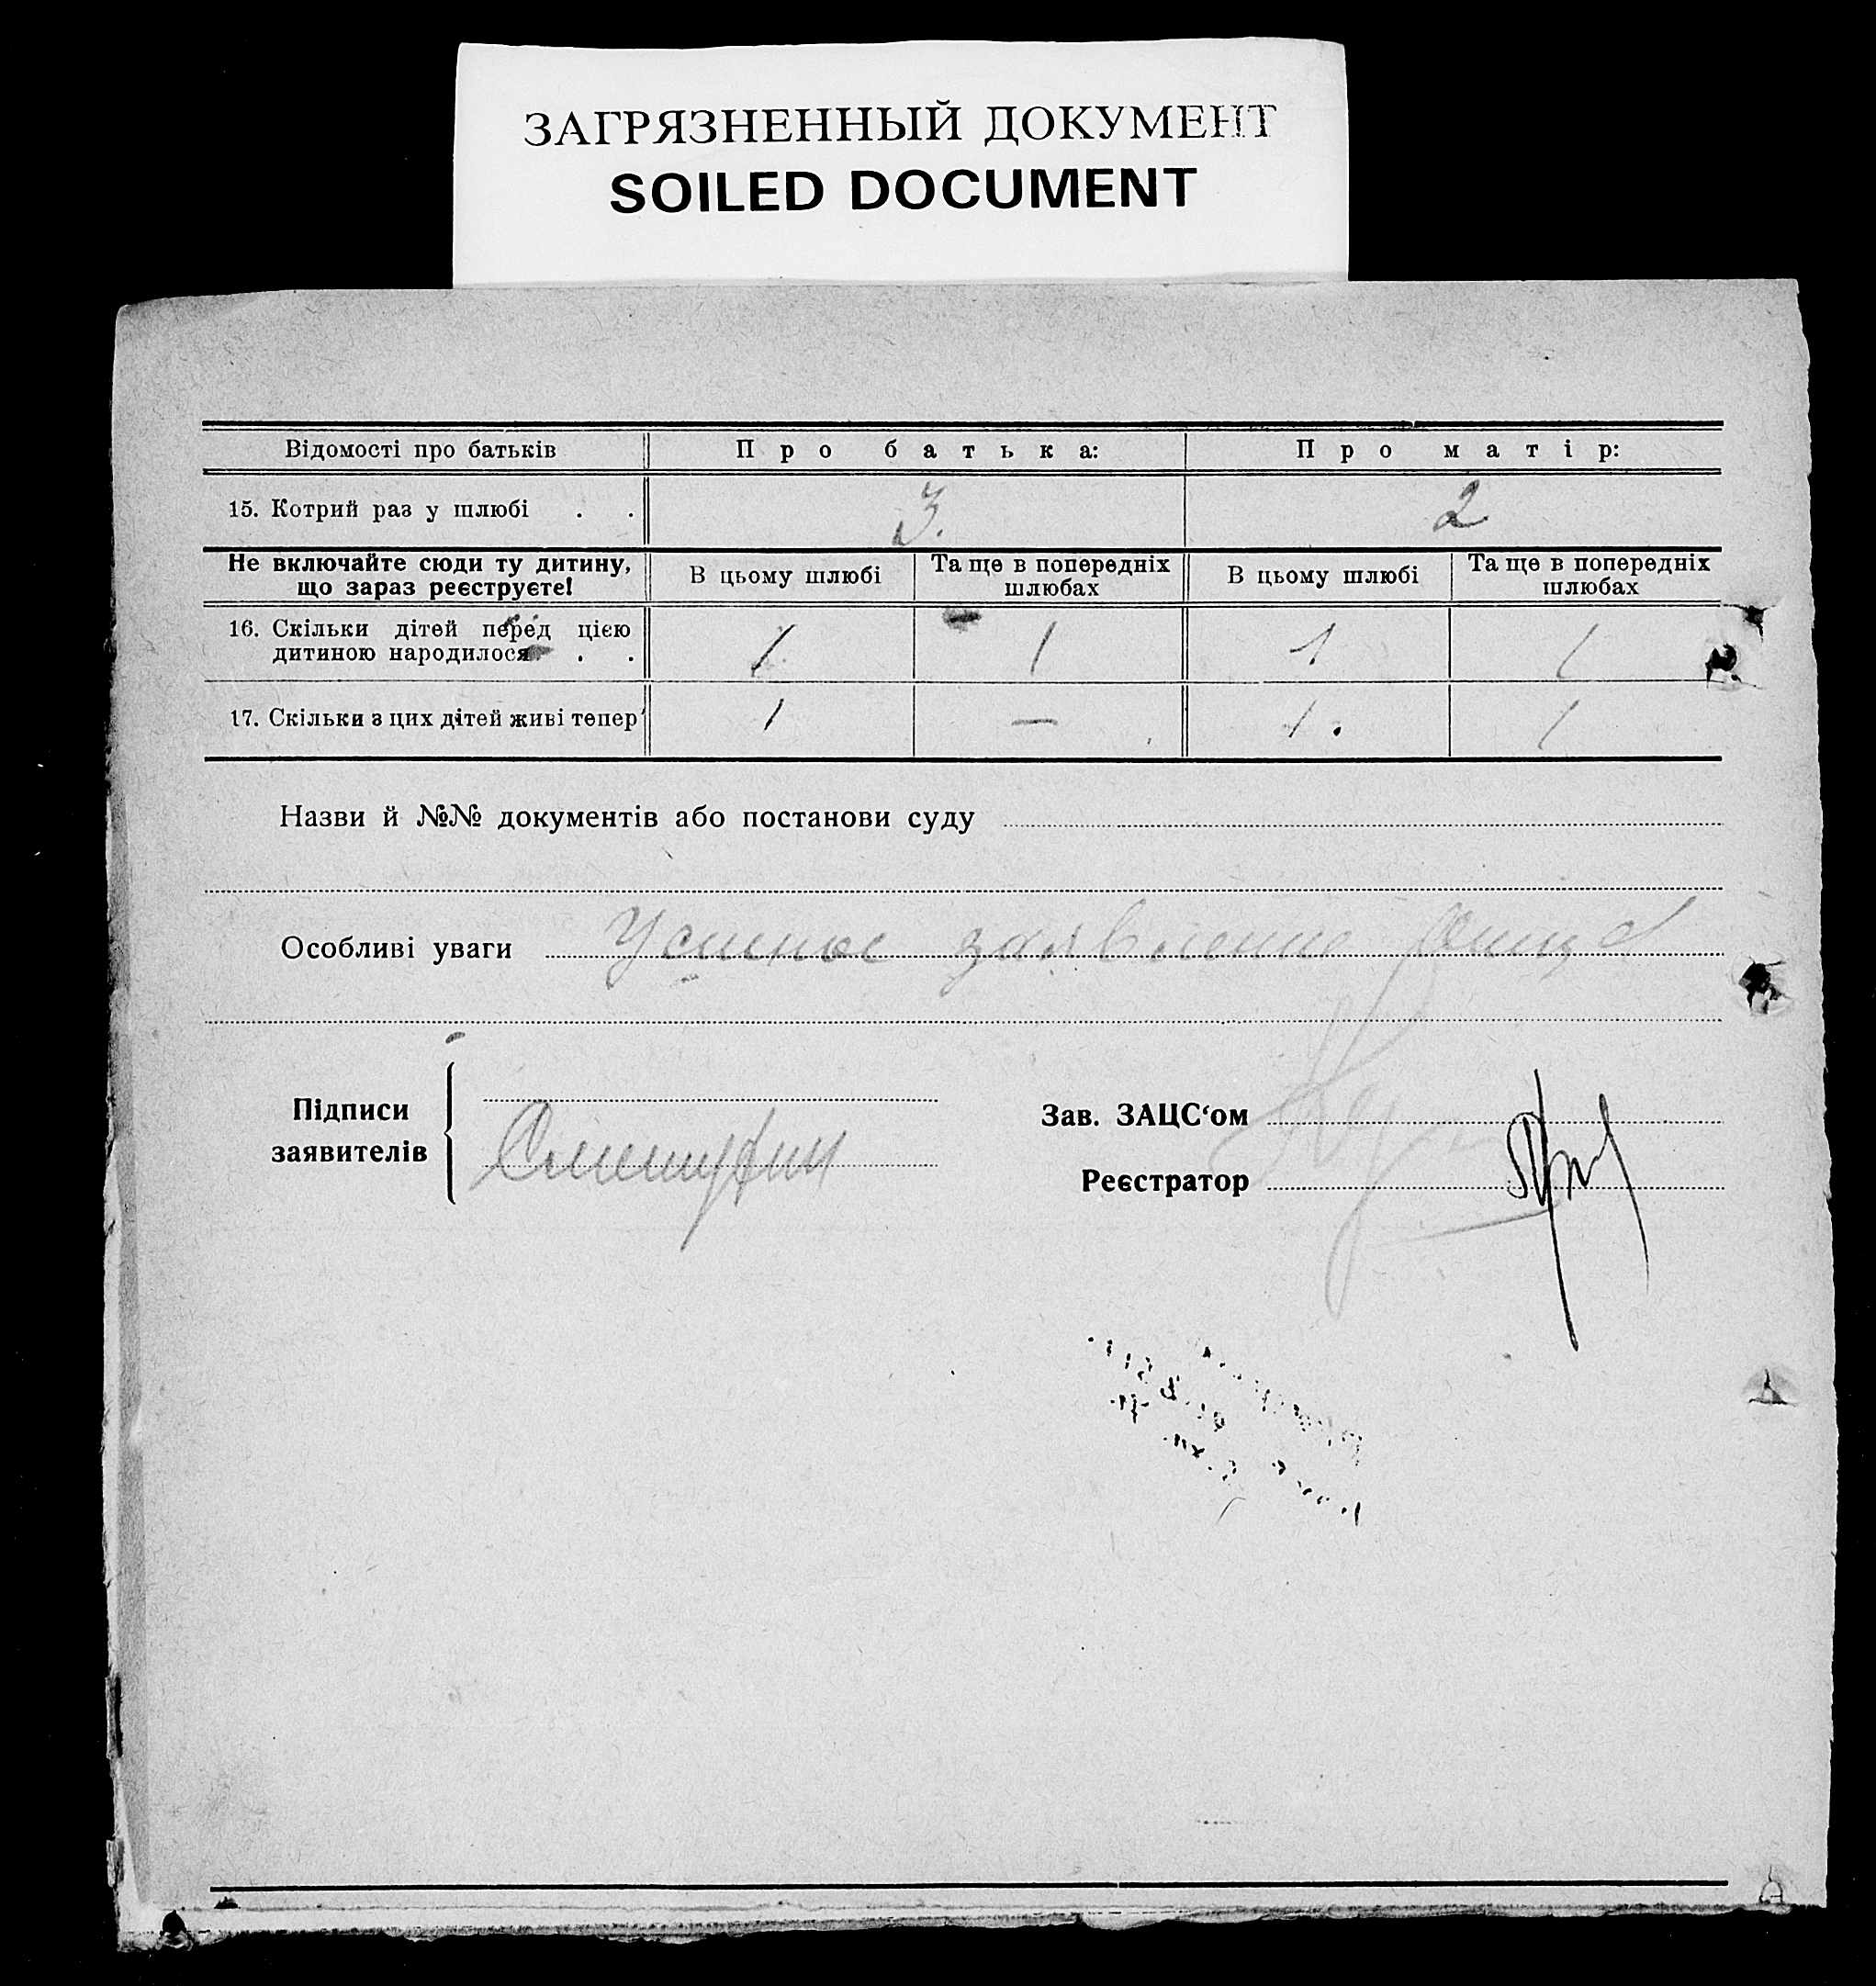 ЗАГРЯЗНЕННЫЙ ДОКУМЕНТ
SOILED DOCUMENT
Відомості про батьків Про батька: Про матір:
15. Котрий раз у шлюбі . . 3. 2
Не включайте сюди ту дитину, що зараз реєструєте! В цьому шлюбі Та ще в попередніх шлюбах В цьому шлюбі Та ще в попередніх шлюбах
16. Скільки дітей перед цією
дитиною народилося . . 1 1 1 1
17. Скільки з цих дітей живі тепер 1 — 1. 1
Назви й №№ документів або постанови суду
Особливі уваги Устное заявление
Підписи
заявителів
Зав. ЗАЦС‘ом
Реєстратор